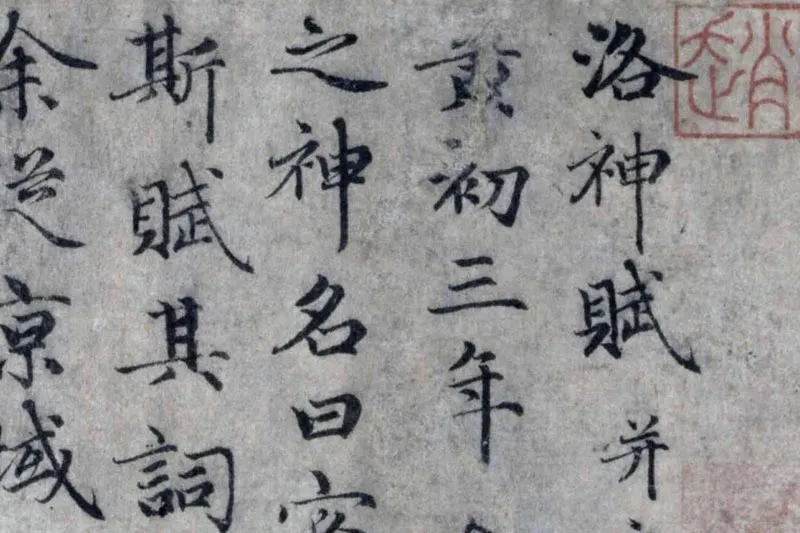 洛神賦并
黄初三年
之神名曰宓
斯賦其詞
余從京域
趙